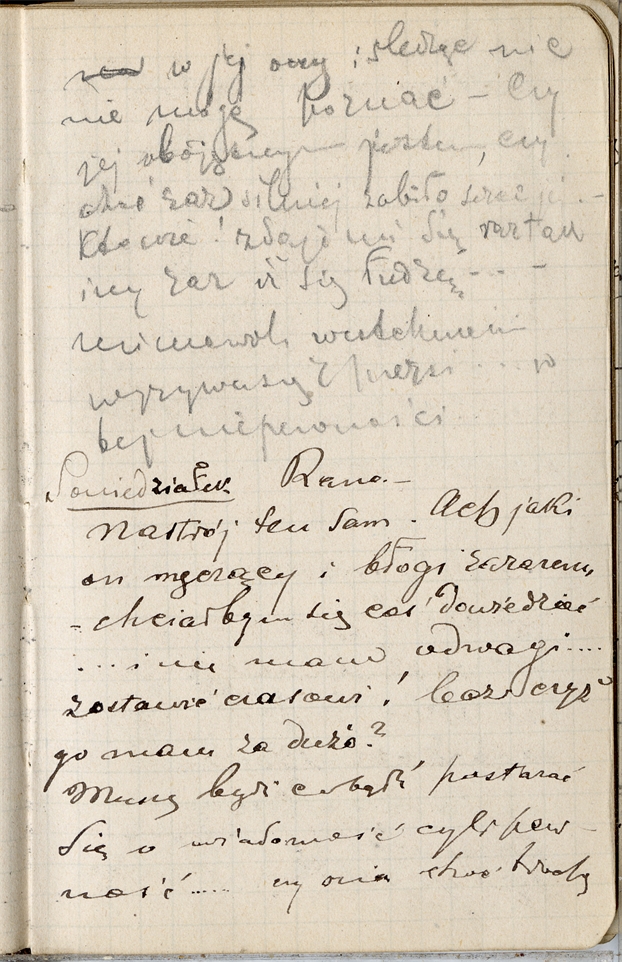 w jej oczy i śledzę nic
nie mogę poznać – Czy
jej obojętnym jestem, czy
choć raz silniej zabiło serce jej –
Kto wie! zdaje mi się raz tak
inny raz iż się łudzę – . . –
mimowoli westchnienie
wyrywa się z piersi . . . w
tej niepewności
Poniedziałek Rano. –
Nastrój ten sam. Ach jaki
on męczący i błogi zarazem,
– chciałbym się coś dowiedzieć
... i nie mam odwagi....
zostawić czasowi! lecz czyż
go mam za dużo?
Muszę bądź co bądź postarać
się o wiadomość czyli pew–
ność ..... czy ona choć trochę